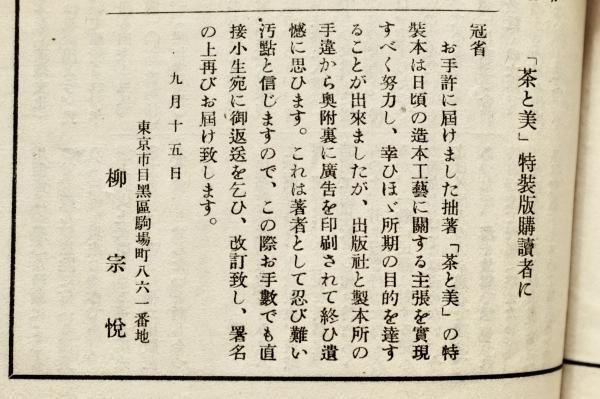 「茶と美」特裝版購讀者に
冠省
お手許に屆けました拙著「茶と美」の特
裝本は日頃の造本工藝に關する主張を實現
すべく努力し、幸ひほゞ所期の目的を達す
ることが出來ましたが、出版社と製本所の
手違から奧附裏に廣告を印刷されて終ひ遺
憾に思ひます。これは著者として忍び難い
汚點と信じますので、この際お手數でも直
接小生宛に御返送を乞ひ、改訂致し、署名
の上再びお屆け致します。
九月十五日
東京市目黑區駒場町八六一番地
柳宗悅